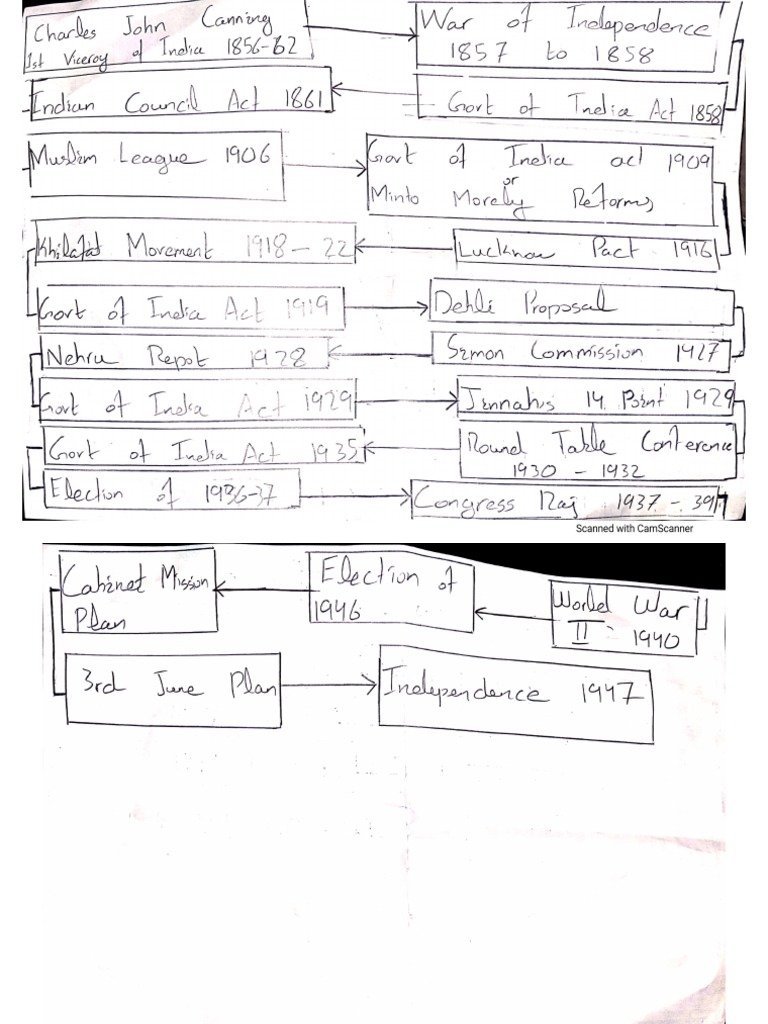 Charles John Canning
1st Viceroy of India 1856-62
War of Independence
1857 to 1858
Indian Council Act 1861
Govt of India Act 1858
Muslim League 1906
Govt of India act 1909
or
Minto Morely Reforms
Khilafat Movement 1918 - 22
Lucknow Pact 1916
Govt of India Act 1919
Dehli Proposal
Nehru Repot 1928
Simon Commission 1927
Govt of India Act 1929
Jinnahs 14 Point 1929
Govt of India Act 1935
Round Table Conference
1930 - 1932
Election of 1936-37
Congress Raj 1937 - 39
Scanned with CamScanner
Cabinet Mission
Plan
Election of
1946
World War
II 1940
3rd June Plan
Independence 1947